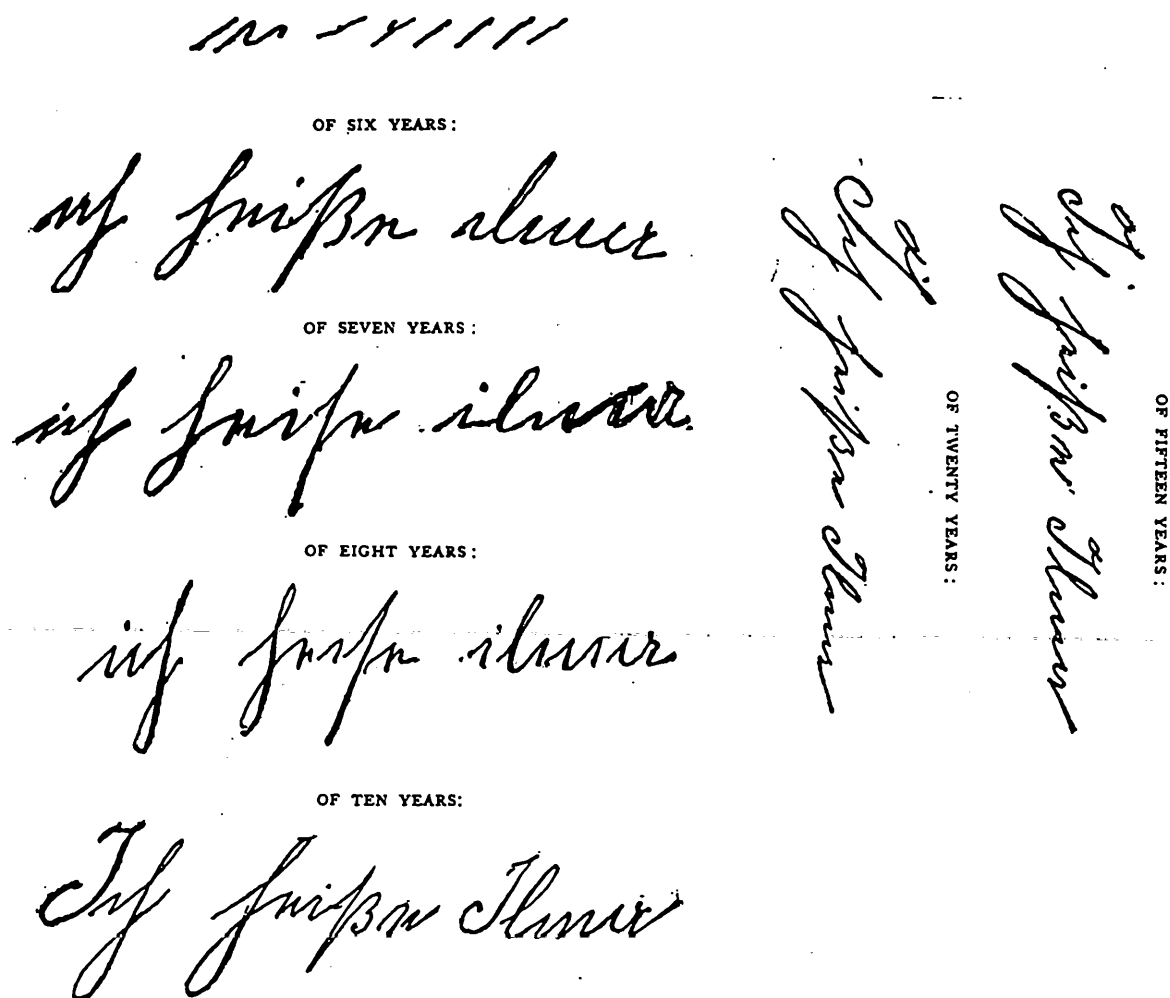 OF SIX YEARS:
ich heiße ilma
OF SEVEN YEARS:
ich heiſe ilma
OF EIGHT YEARS:
ich heiſe ilma
OF TEN YEARS:
Ich heiße Ilma
OF FIFTEEN YEARS:
Ich heiße Ilma
OF TWENTY YEARS:
Ich heiße Ilma